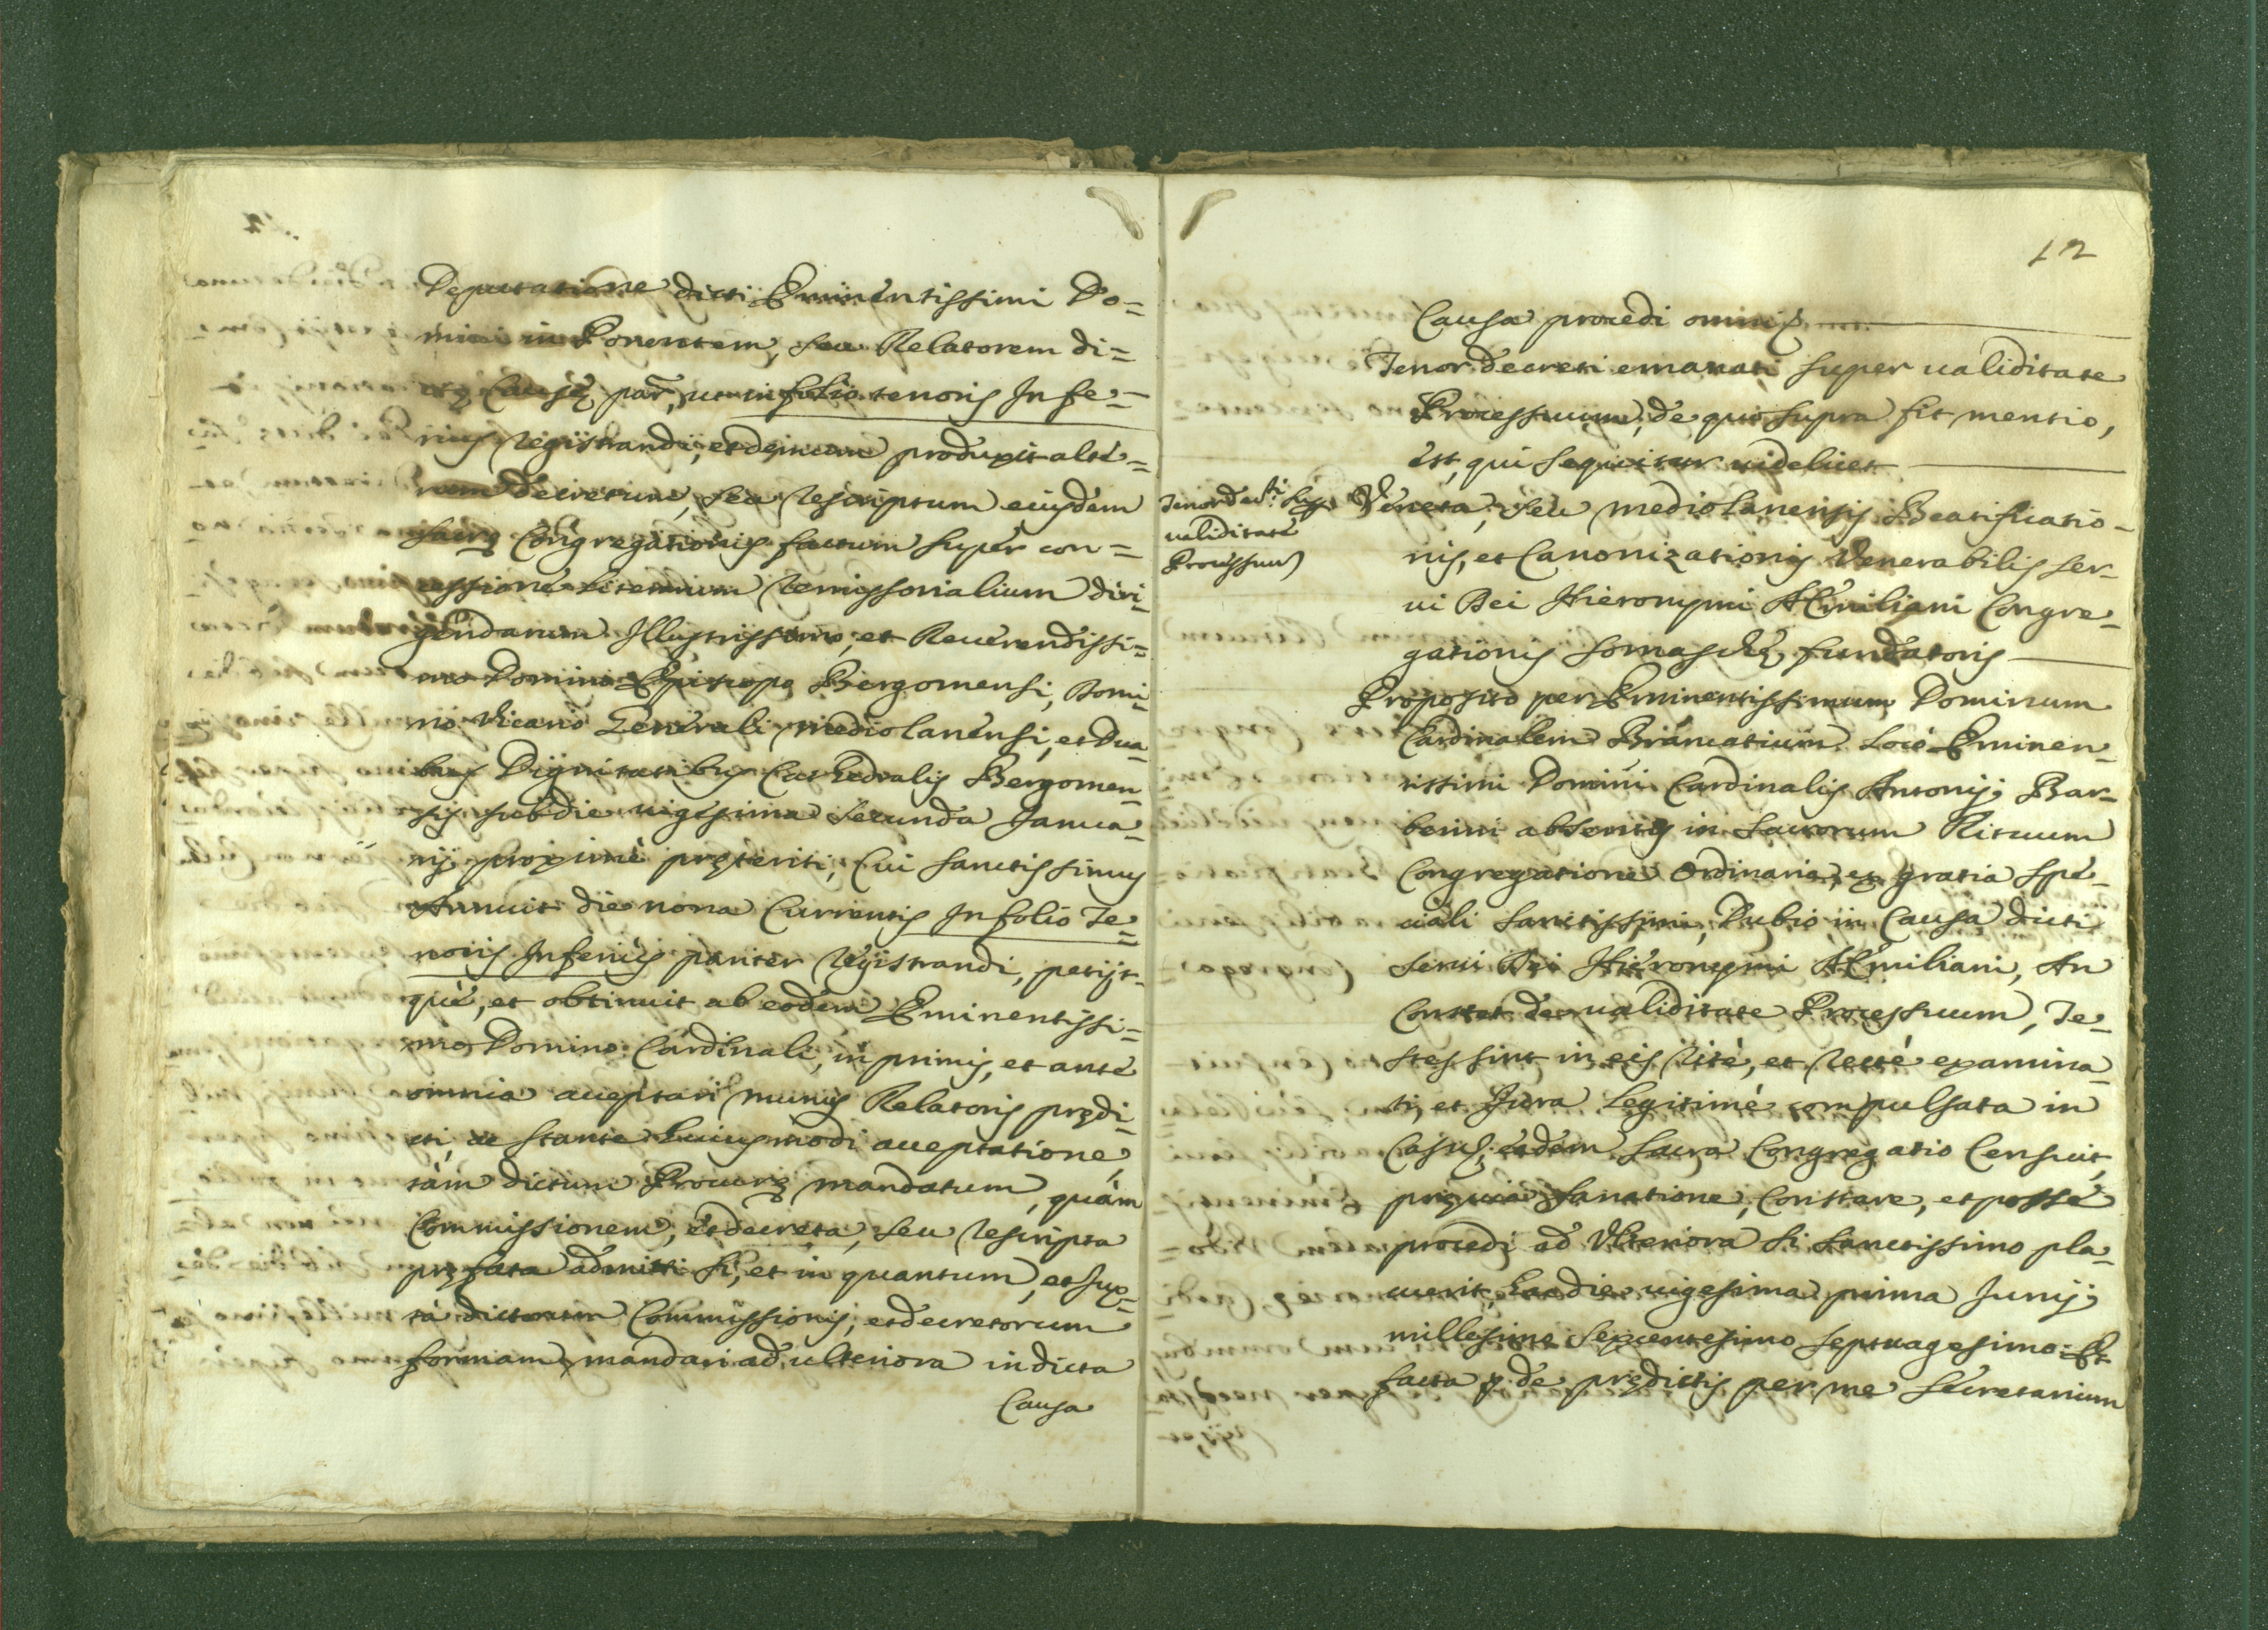 Deputatione dicti Eminentissimi Do=
mini in Ponentem, seu Relatorem di=
ctę Causę par, ut in folio tenoris Infe=
rius registrandi, et demum produxit alte=
rum decretum, seu rescriptum eiusdem
sacrę Congregationis factum super con=
cessione literarum remissorialium diri=
gendarum Illustrissimo, et Reuerendissi=
mo Domino Episcopo Bergomensi, Domi=
no Vicario Generali mediolanensi, et Dua
bus Dignitatibus Cathedralis Bergomen=
sis sub die uigesima secunda Janua=
rij proximè pręteriti, Cui sanctissimus
Annuit die nona Currentis In folio Te=
noris Inferius pariter regïstrandi, petijt=
què, et obtinuit ab eodem Eminentissi=
mo Domino Cardinali, in primis, et ante
omnia acceptari munus Relatoris prędi=
cti, ac stante huiusmodi acceptatione,
tàm dictum Procurę mandatum, quàm
Commissionem, et decreta, seu rescripta
pręfata admitti si, et in quantum, et iux=
ta dictorum Commissionis, et decretorum
formam, mandari ad ulteriora in dicta
Causa
12
Causa procedi omnis
Tenor decreti emanati super ualiditate
Processuum, de quo supra fit mentio,
est, qui sequitur uidelicet
Tenor decti sup
ualiditate
Processuu
Veneta, seu mediolanensis Beatificatio=
nis, et Canonizationis Venerabilis ser=
ui Dei Hieronymi Æmiliani Congre=
gationis somaschę fundatoris
Proposito per Eminentissimum Dominum
Cardinalem Brancatium Loco Eminen=
tissimi Domini Cardinalis Antonij Bar=
berini absentis in sacrorum Rituum
Congregatione Ordinaria, ex gratia spe=
ciali sanctissimi, Dubio in Causa dicti
serui Dei Hieronymi Æmiliani, An
Constet de ualiditate Processuum, Te=
stes sint in eis ritè, et rectè examina=
ti, et Jura legitimè compulsata in
Casu, eadem sacra Congregatio Censuit,
pręuia sanatione, Constare, et posse
procedi ad Vlteriora si sanctissimo pla=
cuerit, hac die uigesima prima Junij
millesimo sexcentesimo septuagesimo. Et
facta p. de prędictis per me secretarium